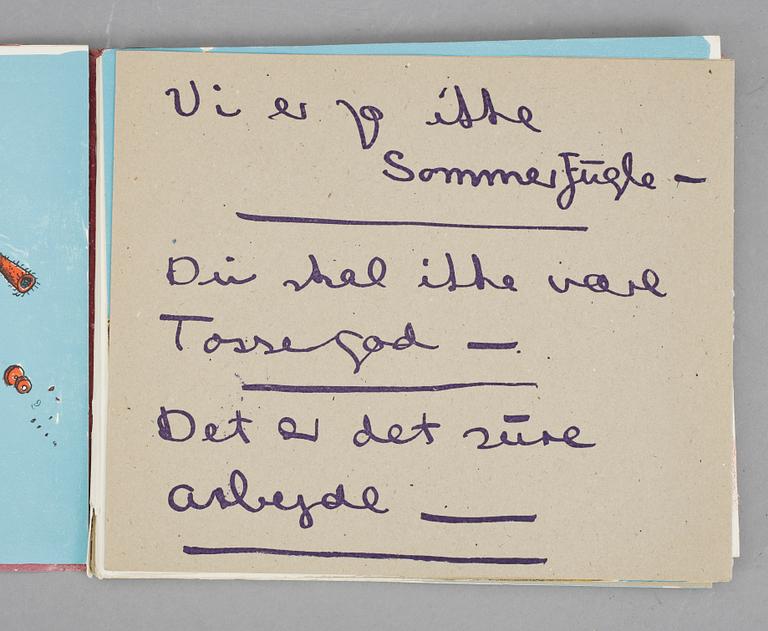 Vi er jo ikke
Sommerfugle —
Du skal ikke være
Tossegod —
Det er det sure
arbejde —